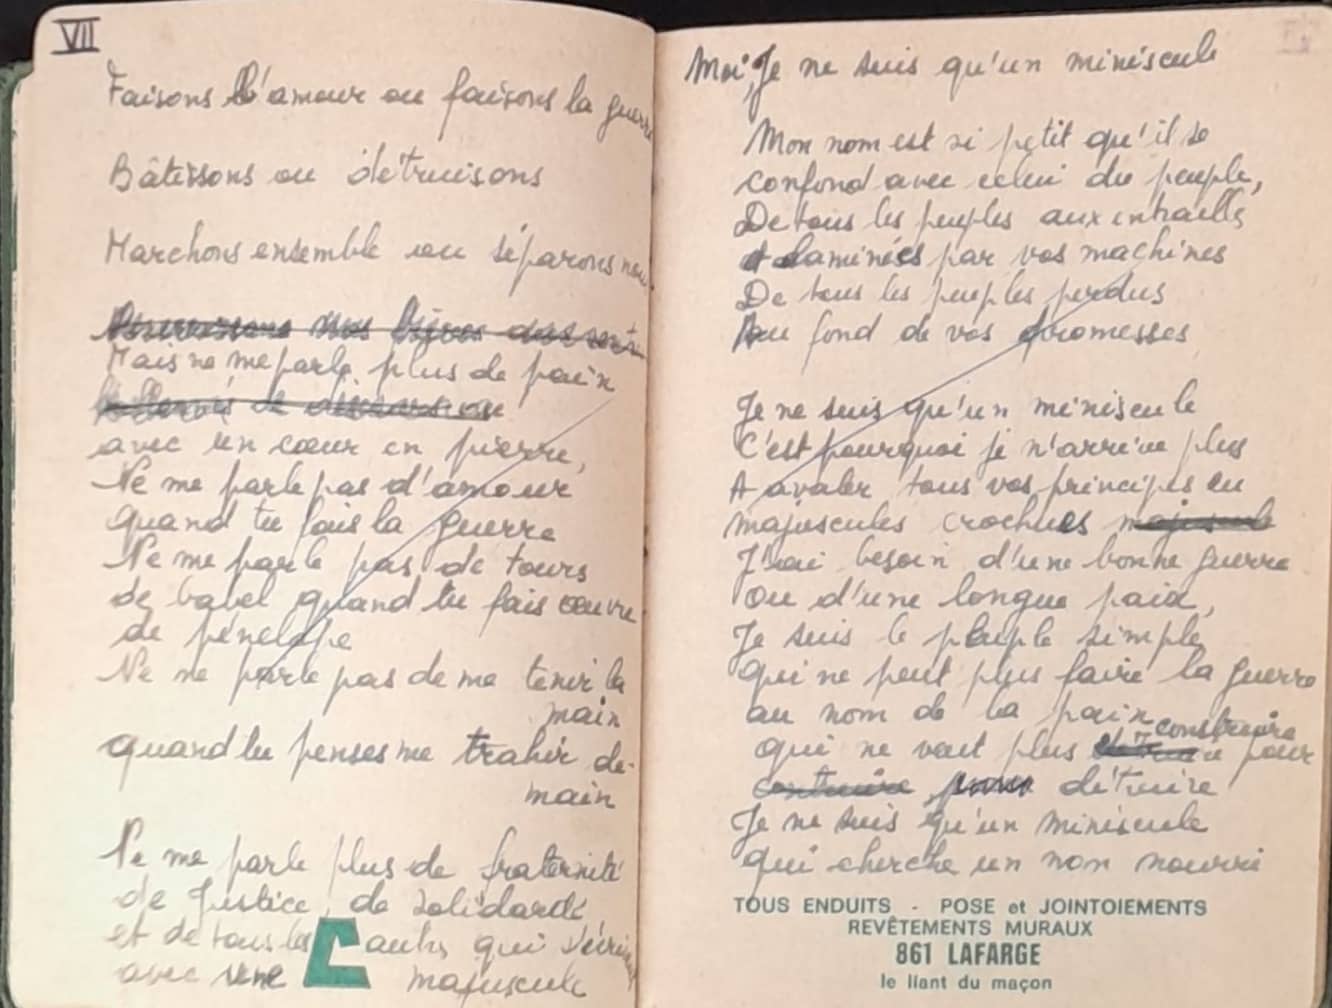 VII
Faisons l'amour ou faisons la guerre
Bâtissons ou détruisons
Marchons ensemble ou séparons nou
nos
Mais ne me parle plus de pain
de
avec un cœur en pierre,
Ne me parle pas d'amour
quand tu fais la guerre
Ne me parle pas de tours
de babel quand tu fais œuvre
de pénélope
Ne me parle pas de me tenir la
main
quand tu penses me trahir de-
main
Ne me parle plus de fraternité
de Justice, de solidarité
et de tous les autres qui s'écri
avec une majuscule
Moi, Je ne suis qu'un miniscule
Mon nom est si petit qu'il se
confond avec celui du peuple,
De tous les peuples aux entrailles
laminées par vos machines
De tous les peuples perdus
Au fond de vos promesses
Je ne suis qu'un miniscule
C'est pourquoi je n'arrive plus
A avaler tous vos principes en
majuscules crochues majuscule
J'ai besoin d'une bonne guerre
Ou d'une longue paix,
Je suis le peuple simple
qui ne peut plus faire la guerre
au nom de la paix
construire
qui ne veut plus pour
construire pour détruire
Je ne suis qu'un miniscule
qui cherche un nom nourri
TOUS ENDUITS - POSE et JOINTOIEMENTS
REVÊTEMENTS MURAUX
861 LAFARGE
le liant du maçon